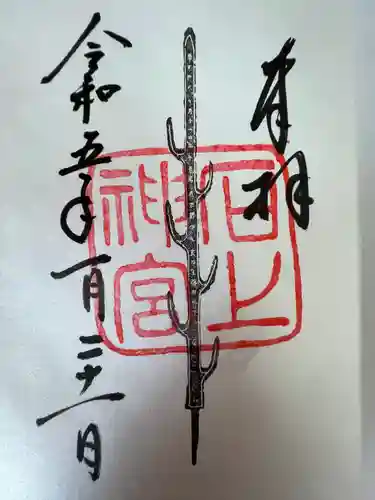 奉拝
石上
神宮
令和五年一月二十一日